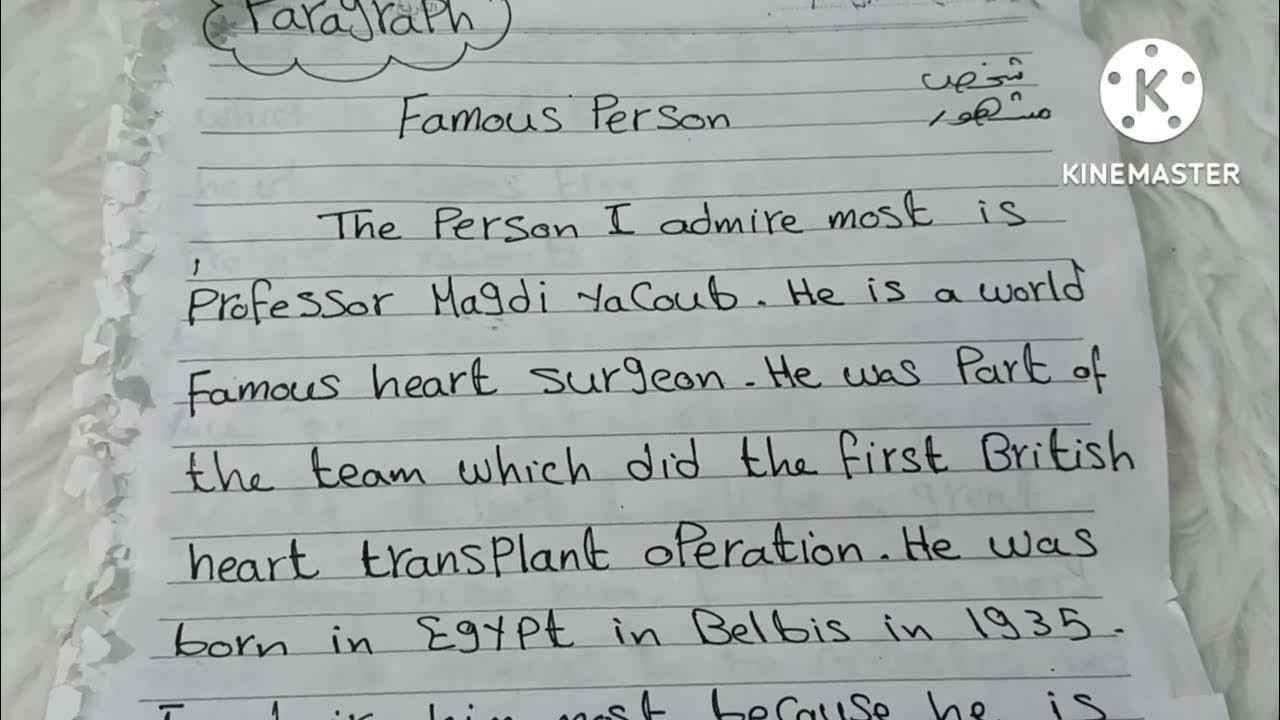 Paragraph
Famous Person
شخص
مشهور
K
KINEMASTER
The Person I admire most is
Professor Magdi Yacoub. He is a world
Famous heart surgeon. He was Part of
the team which did the first British
heart transplant operation. He was
born in Egypt in Belbis in 1935.
most because he is